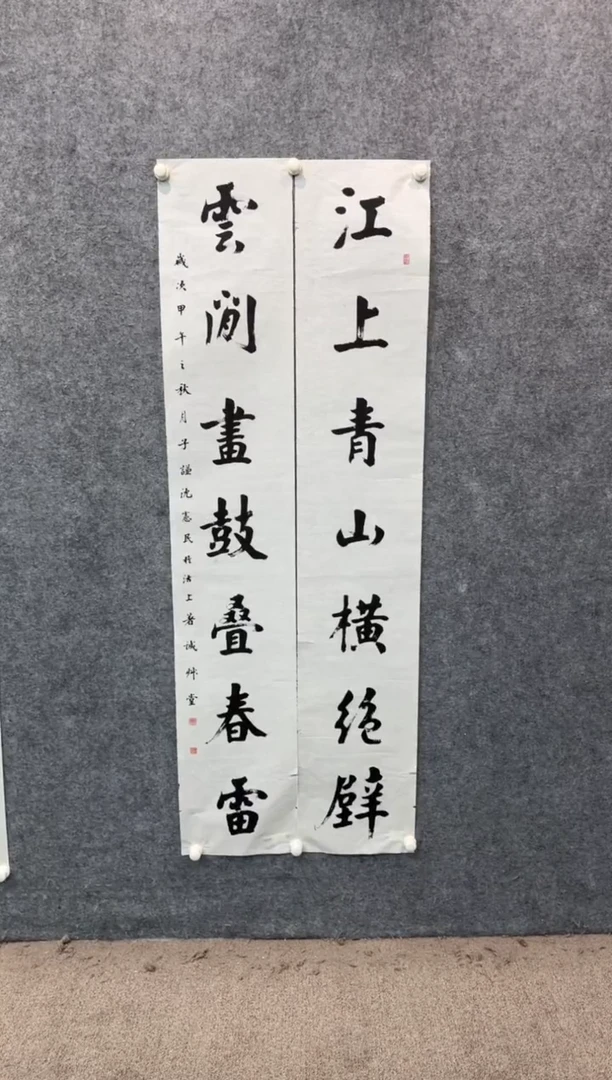 江上青山横绝壁
雲間畫鼓叠春雷
歲次甲午之秋月子謙沈憲民於上著誠艸堂